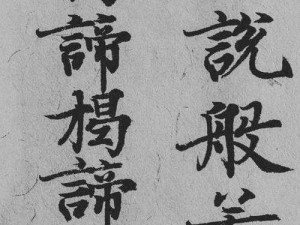 說般
諦揭諦